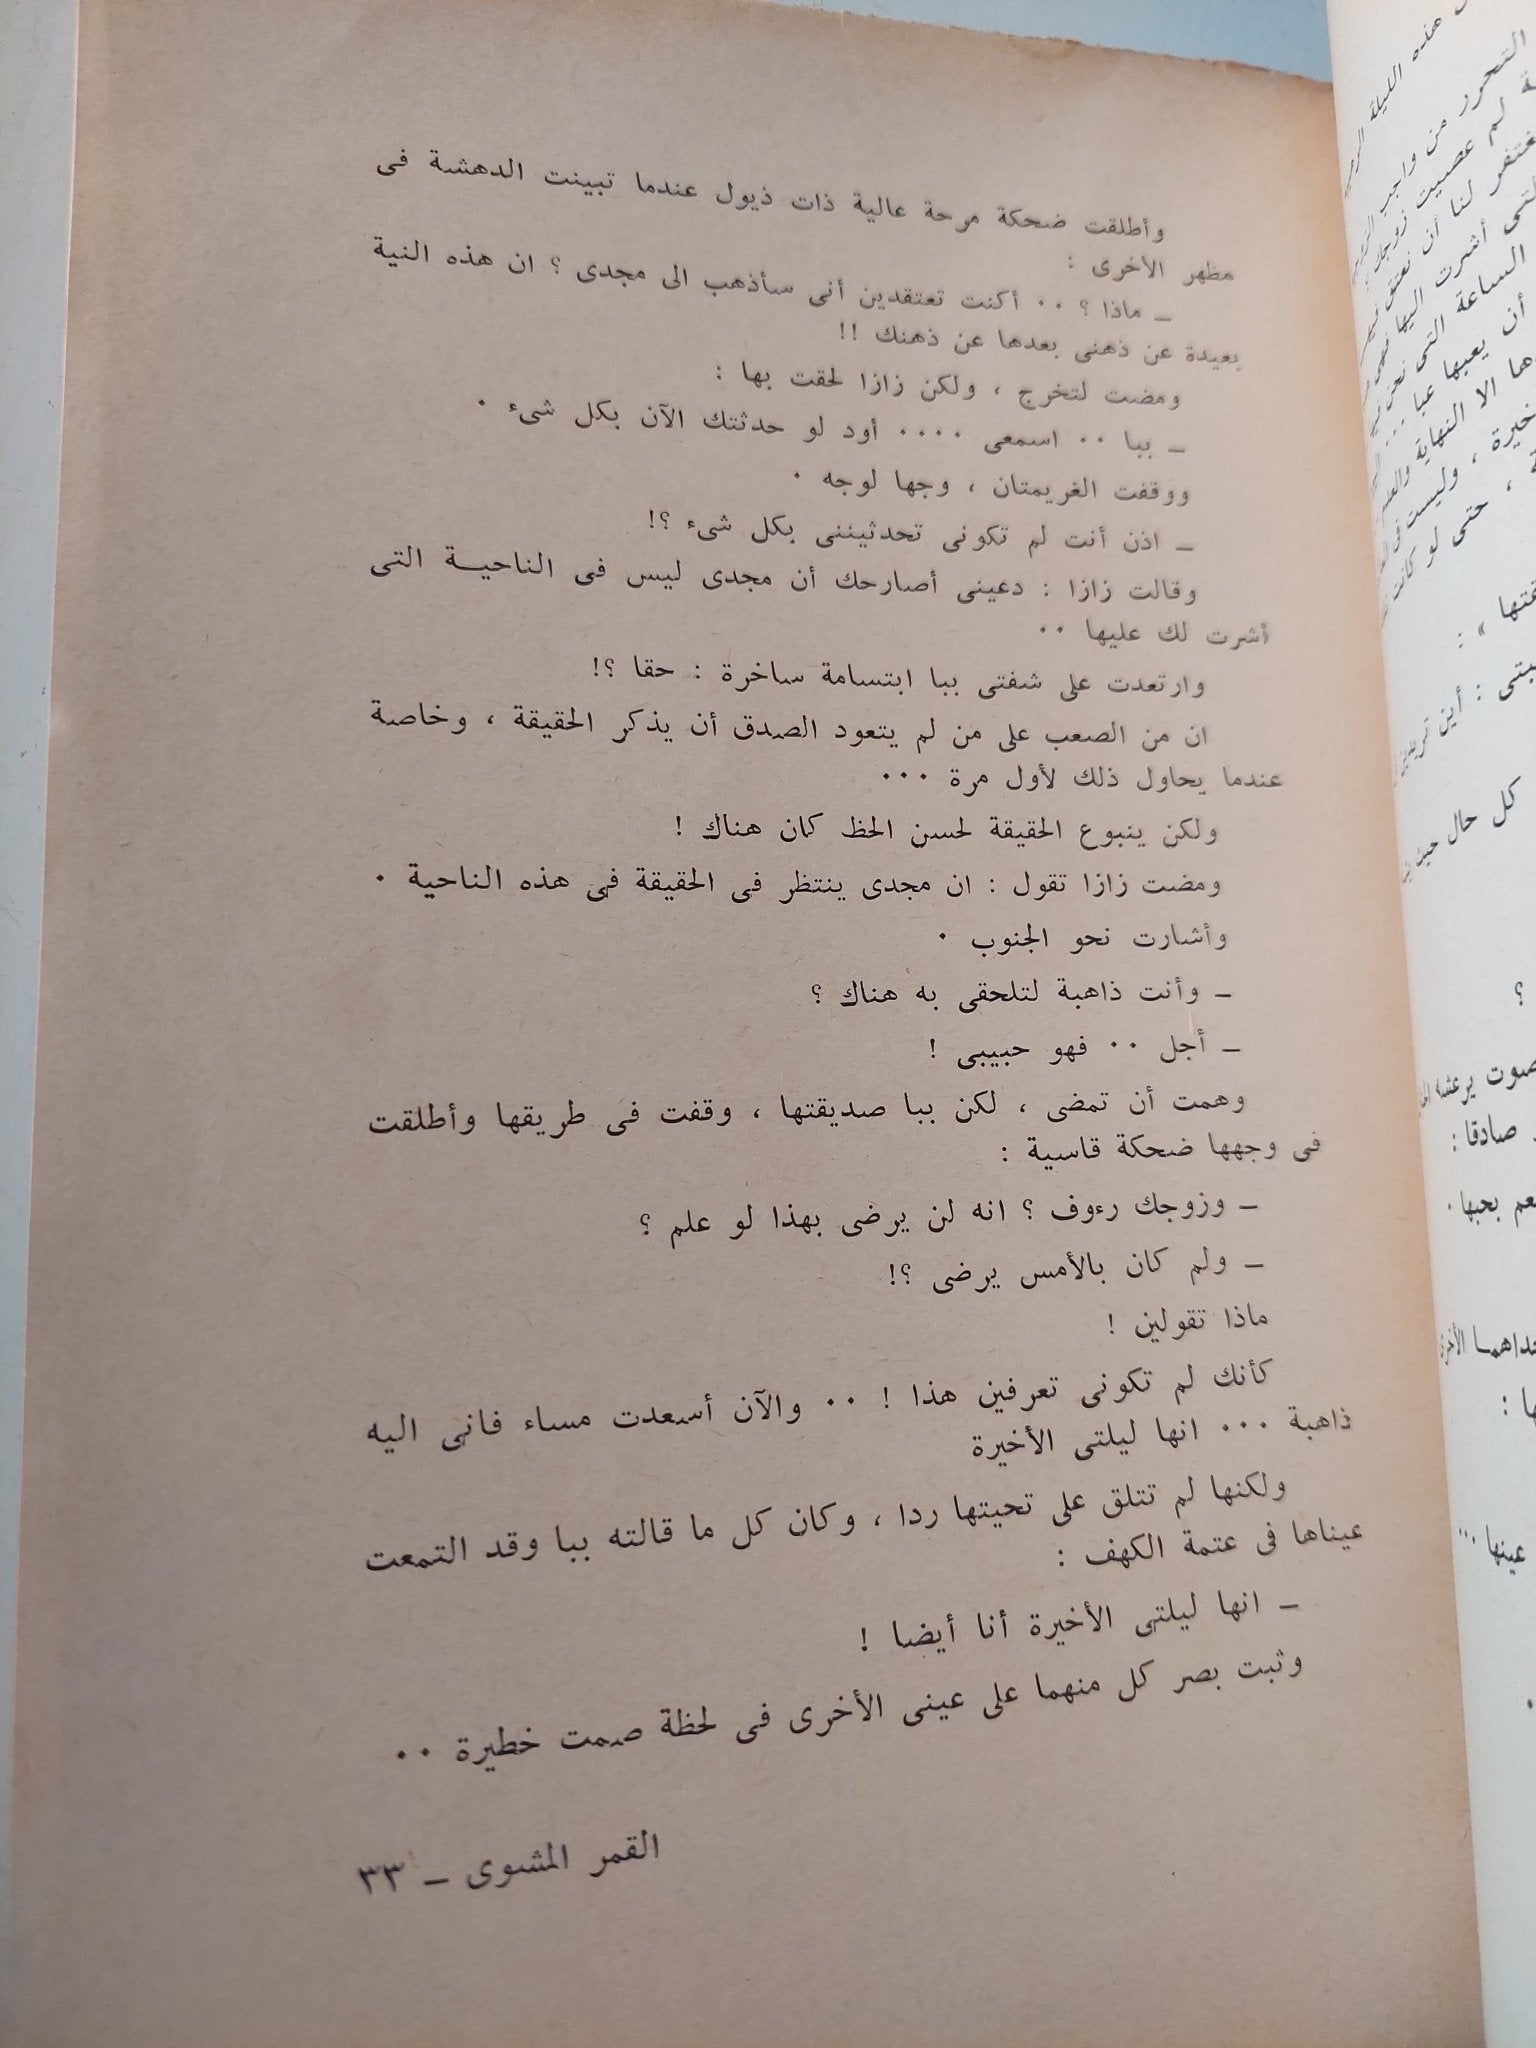 وأطلقت ضحكة مرحة عالية ذات ذيول عندما تبينت الدهشة فى
مظهر الأخرى :
ـ ماذا ؟ ٠٠ أكنت تعتقدين أنى سأذهب الى مجدى ؟ ان هذه النية
بعيدة عن ذهنى بعدها عن ذهنك !!
ومضت لتخرج ، ولكن زازا لحقت بها :
ـ ببا ٠٠ اسمعى ٠٠٠٠ أود لو حدثتك الآن بكل شىء ٠
ووقفت الغريمتان ، وجها لوجه ٠
ـ اذن أنت لم تكونى تحدثيننى بكل شىء ؟!
وقالت زازا : دعينى أصارحك أن مجدى ليس فى الناحيــة التى
أشرت لك عليها ٠٠
وارتعدت على شفتى ببا ابتسامة ساخرة : حقا ؟!
ان من الصعب على من لم يتعود الصدق أن يذكر الحقيقة ، وخاصة
عندما يحاول ذلك لأول مرة ٠٠٠
ولكن ينبوع الحقيقة لحسن الحظ كان هناك !
ومضت زازا تقول : ان مجدى ينتظر فى الحقيقة فى هذه الناحية ٠
وأشارت نحو الجنوب ٠
ـ وأنت ذاهبة لتلحقى به هناك ؟
ـ أجل ٠٠ فهو حبيبى !
وهمت أن تمضى ، لكن ببا صديقتها ، وقفت فى طريقها وأطلقت
فى وجهها ضحكة قاسية :
ـ وزوجك رءوف ؟ انه لن يرضى بهذا لو علم ؟
ـ ولم كان بالأمس يرضى ؟!
ماذا تقولين !
كأنك لم تكونى تعرفين هذا ! ٠٠ والآن أسعدت مساء فانى اليه
ذاهبة ٠٠٠ انها ليلتى الأخيرة
ولكنها لم تتلق على تحيتها ردا ، وكان كل ما قالته ببا وقد التمعت
عيناها فى عتمة الكهف :
ـ انها ليلتى الأخيرة أنا أيضا !
وثبت بصر كل منهما على عينى الأخرى فى لحظة صمت خطيرة ٠٠
القمر المشوى ـ ٣٣
هذه الليلة
التحرز من واجب
لم عصيت زوجك
لنا أن نعتق
أشرت اليها
الساعة التى نحن
أن يعبها عبا ٠٠٠
ها الا النهاية
، وليست فى
، حتى لو كانت
» :
: أين تريدين
كل حال حيث
؟
صوت يرعشه
صادقا :
بحبها ٠
الأخرى
:
عينها ٠٠٠